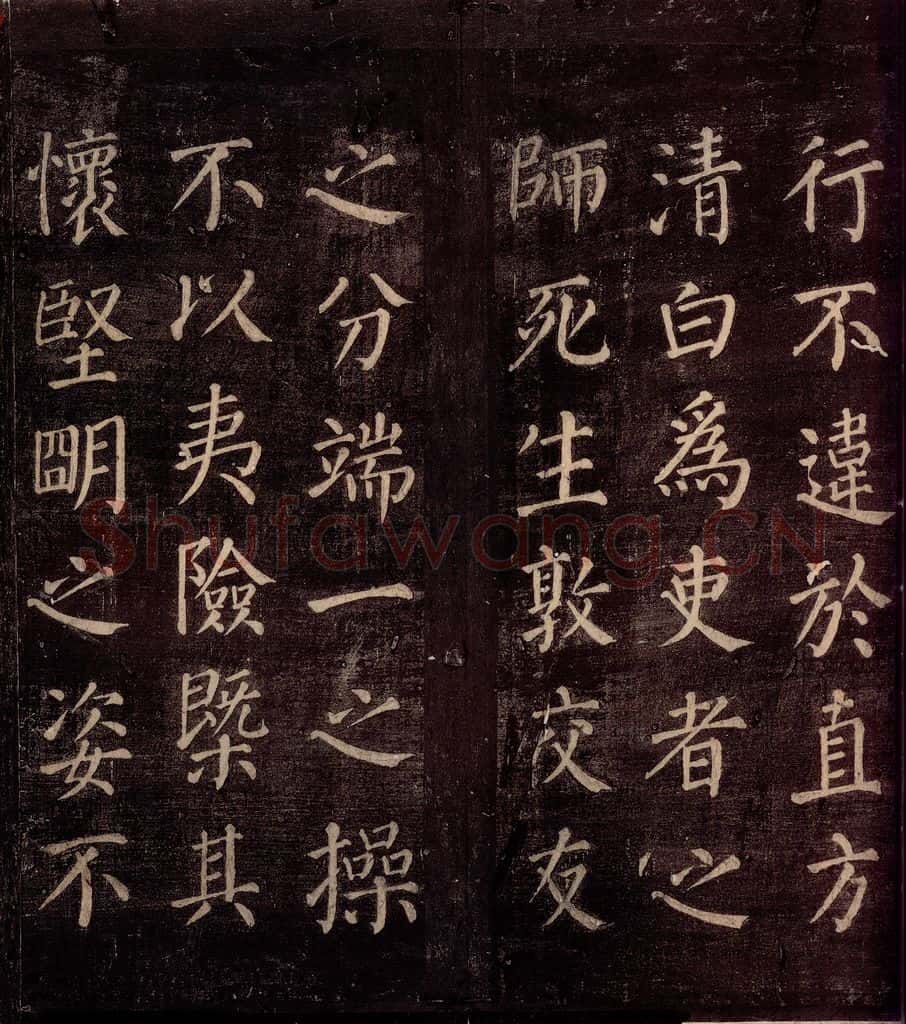 行不違於直方
清白爲吏者之
師死生敦交友
之分端一之操
不以夷險槩其
懷堅朙之姿不
Shufawang.CN